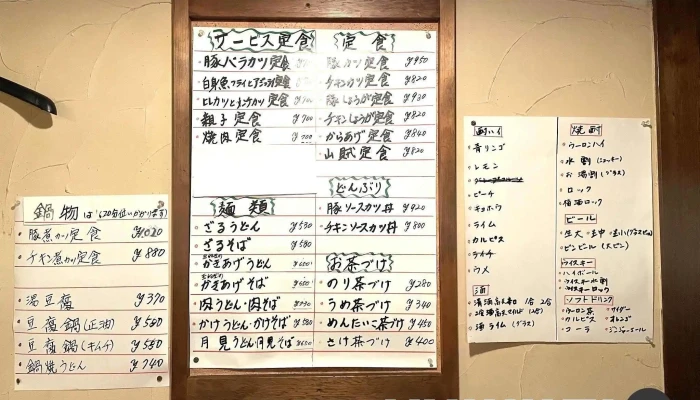 鍋物は
豚煮カツ定食 ¥1020
チキン煮カツ定食 ¥880
湯豆腐 ¥370
豆腐鍋(正油) ¥550
豆腐鍋(キムチ) ¥550
鍋焼うどん ¥740
サービス定食
豚バラカツ定食
白身魚フライとアジフライ定食
ヒレカツとメンチカツ定食
親子定食 ¥700
焼肉定食 ¥700
麺類
ざるうどん ¥530
ざるそば ¥580
かきあげうどん ¥600
かきあげそば ¥650
肉うどん・肉そば ¥730
かけうどん・かけそば ¥580
月見うどん月見そば ¥650
定食
豚カツ定食 ¥950
チキンカツ定食 ¥820
豚しょうが定食 ¥930
チキンしょうが定食 ¥820
からあげ定食 ¥840
山賊定食 ¥820
どんぶり
豚ソースカツ丼 ¥920
チキンソースカツ丼 ¥800
お茶づけ
のり茶づけ ¥280
うめ茶づけ ¥340
めんたいこ茶づけ ¥450
さけ茶づけ ¥400
酎ハイ
青リンゴ
レモン
ピーチ
キョホウ
ライム
カルピス
ライチ
ウメ
酒
酒ライム(グラス)
焼酎
ウーロンハイ
水割(ジョッキー)
お湯割(グラス)
ロック
梅酒ロック
ビール
生大・生中
ビンビール(大ビン)
ウイスキー
ハイボール
ウイスキー水割
ウイスキーロック
ソフトドリンク
ウーロン茶 サイダー
カルピス オレンジ
コーラ ジンジャーエール